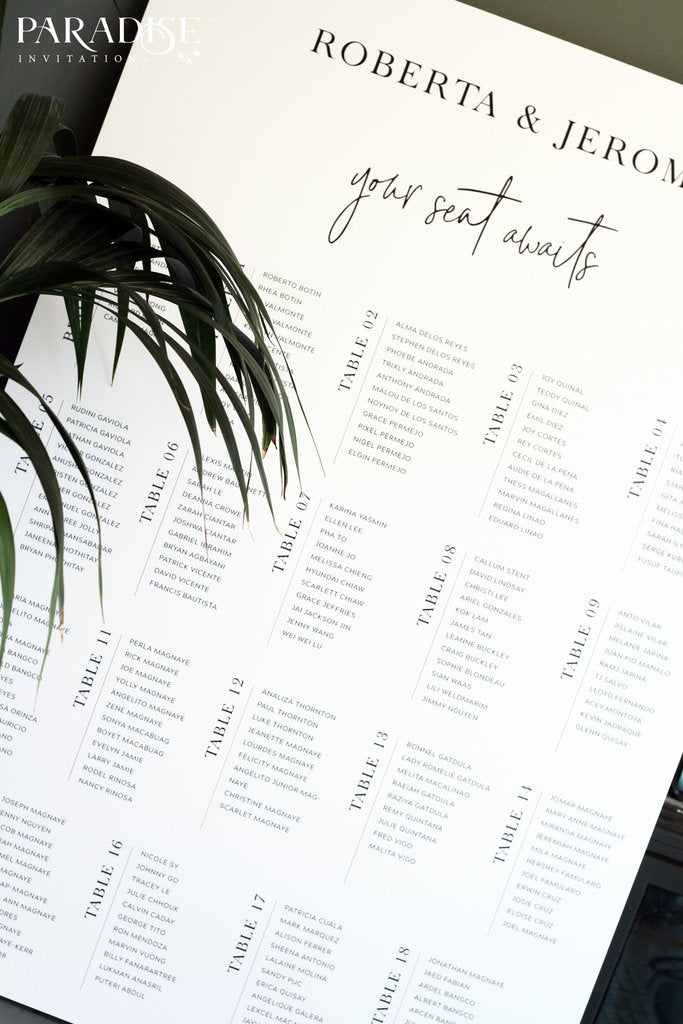 PARADISE
INVITATIONS
ROBERTA & JEROM
your seat awaits
ROBERTO BOTIN
RHEA BOTIN
VALMONTE
VALMONTE
TABLE 02
ALMA DELOS REYES
STEPHEN DELOS REYES
PHOEBE ANDRADA
TRIXLY ANDRADA
ANTHONY ANDRADA
MALOU DE LOS SANTOS
NOYNOY DE LOS SANTOS
GRACE PERMEJO
PIXEL PERMEJO
NIGEL PERMEJO
ELGIN PERMEJO
TABLE 03
JOY QUINAL
TEDDY QUINAL
GINA DIEZ
EMIL DIEZ
JOY CORTES
REY CORTES
CECIL DE LA PENA
AUDIE DE LA PENA
THESS MAGALLANES
MARVIN MAGALLANES
REGINA LINAO
EDUARD LINAO
TABLE 04
TABLE 05
RUDINI GAVIOLA
PATRICIA GAVIOLA
GAVIOLA
GONZALEZ
GONZALEZ
GONZALEZ
GONZALEZ
GONZALEZ
JOLLY
MANSABADAR
JANEENA
BRYAN
TABLE 06
ANDREW
SARAH LE
DEANNA CROWE
ZARAH CIANTAR
JOSHWA CIANTAR
GABRIEL IBRAHIM
BRYAN AGBAYANI
PATRICK VICENTE
DAVID VICENTE
FRANCIS BAUTISTA
TABLE 07
KARINA YASMIN
ELLEN LEE
PHA TO
JOANNE JO
MELISSA CHIENG
HYUNDAI CHIAW
SCARLETT CHIAW
GRACE JEFFRIES
JAI JACKSON JIN
JENNY WANG
WEI WEI LU
TABLE 08
CALLUM STENT
DAVID LINDSAY
CHRISTI LEE
ARIEL GONZALES
KOK LAM
JAMES TAN
LEANNE BUCKLEY
CRAIG BUCKLEY
SOPHIE BLONDEAU
SIAN WAAS
LILI WELDMARIM
JIMMY NGUYEN
TABLE 09
ANTO VILAR
JISLAINE VILAR
MELANIE JARINA
JUAN PIO MANALO
RAMJ JARINA
TJ SALVO
LLOYD FERNANDO
ACEY MONTOYA
KEVIN JADRAQUE
GLENN QUISAY
TABLE 11
PERLA MAGNAYE
RICK MAGNAYE
JOE MAGNAYE
YOLLY MAGNAYE
ANGELITO MAGNAYE
ZENE MAGNAYE
SONYA MACABUAG
BOYET MACABUAG
EVELYN JAMIE
LARRY JAMIE
RODEL RINOSA
NANCY RINOSA
TABLE 12
ANALIZA THORNTON
PAUL THORNTON
LUKE THORNTON
JEANETTE MAGNAYE
LOURDES MAGNAYE
FELICITY MAGNAYE
ANGELITO JUNIOR MAG-
NAYE
CHRISTINE MAGNAYE
SCARLET MAGNAYE
TABLE 13
RONNEL GATDULA
LADY ROMELIE GATDULA
MELITA MACALINAO
RAEIAH GATDULA
RAZIYA GATDULA
REMY QUINTANA
JULIE QUINTANA
FRED VIGO
MALITA VIGO
TABLE 14
JOMAR MAGNAYE
MARY ANNE MAGNAYE
MIRANDA MAGNAYE
JEREMIAH MAGNAYE
MILA MAGNAYE
HERSHEY FAMULARO
JOEL FAMULARO
ERWIN CRUZ
JOSIE CRUZ
ELOISE CRUZ
JOEL MAGNAYE
JOSEPH MAGNAYE
TABLE 16
NICOLE SY
JOHNNY GO
TRACEY LE
JULIE CHHOUK
CALVIN CADAY
GEORGE TITO
RON MENDOZA
MARVIN VUONG
BILLY FANARARTREE
LUKMAN ANASRIL
PUTERI ABDUL
TABLE 17
PATRICIA CUALA
MARK MARQUEZ
ALISON FERRER
SHEENA ANTONIO
LALAINE MOLINA
SANDY PUC
ERICA QUISAY
ANGELIQUE GALERA
TABLE 18
JONATHAN MAGNAYE
JAED FABIAN
ARDEL BANGCO
ALBERT BANGCO